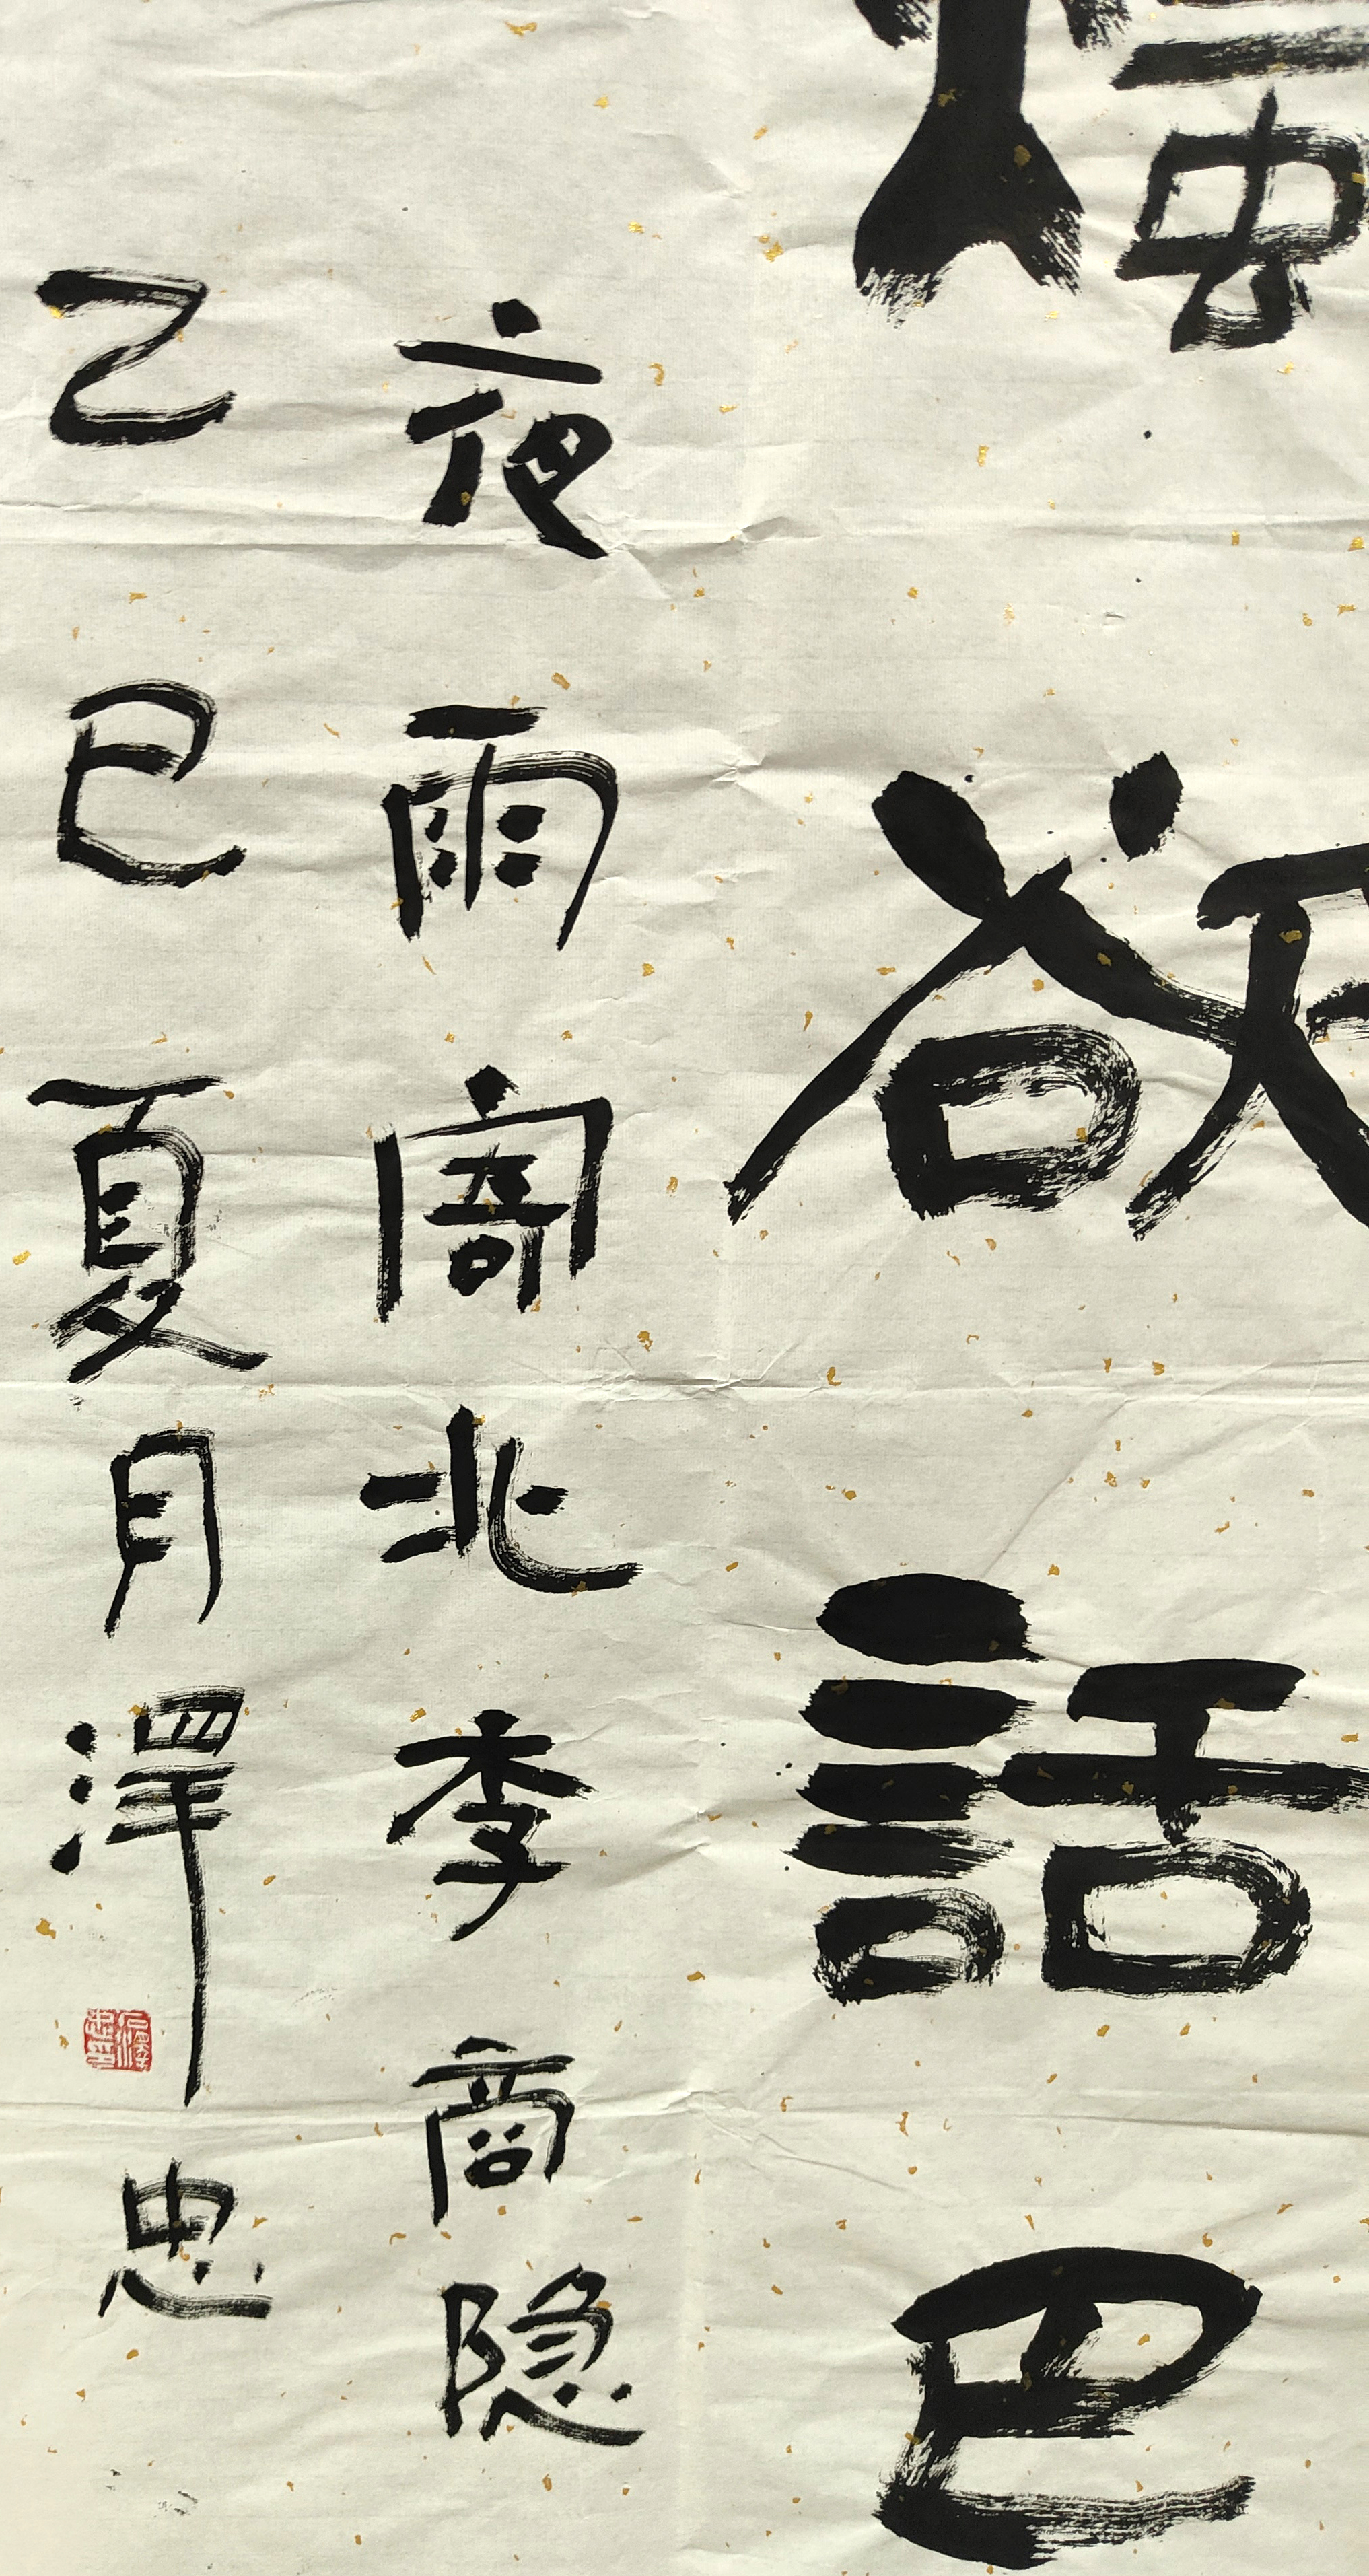 欲話巴
夜雨寄北李商隐
乙巳夏月澤忠